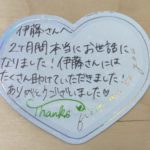 伊藤さんへ
2ヶ月間本当にお世話に
なりました！伊藤さんには
たくさん助けていただきました！
ありがとうございました
Thanks